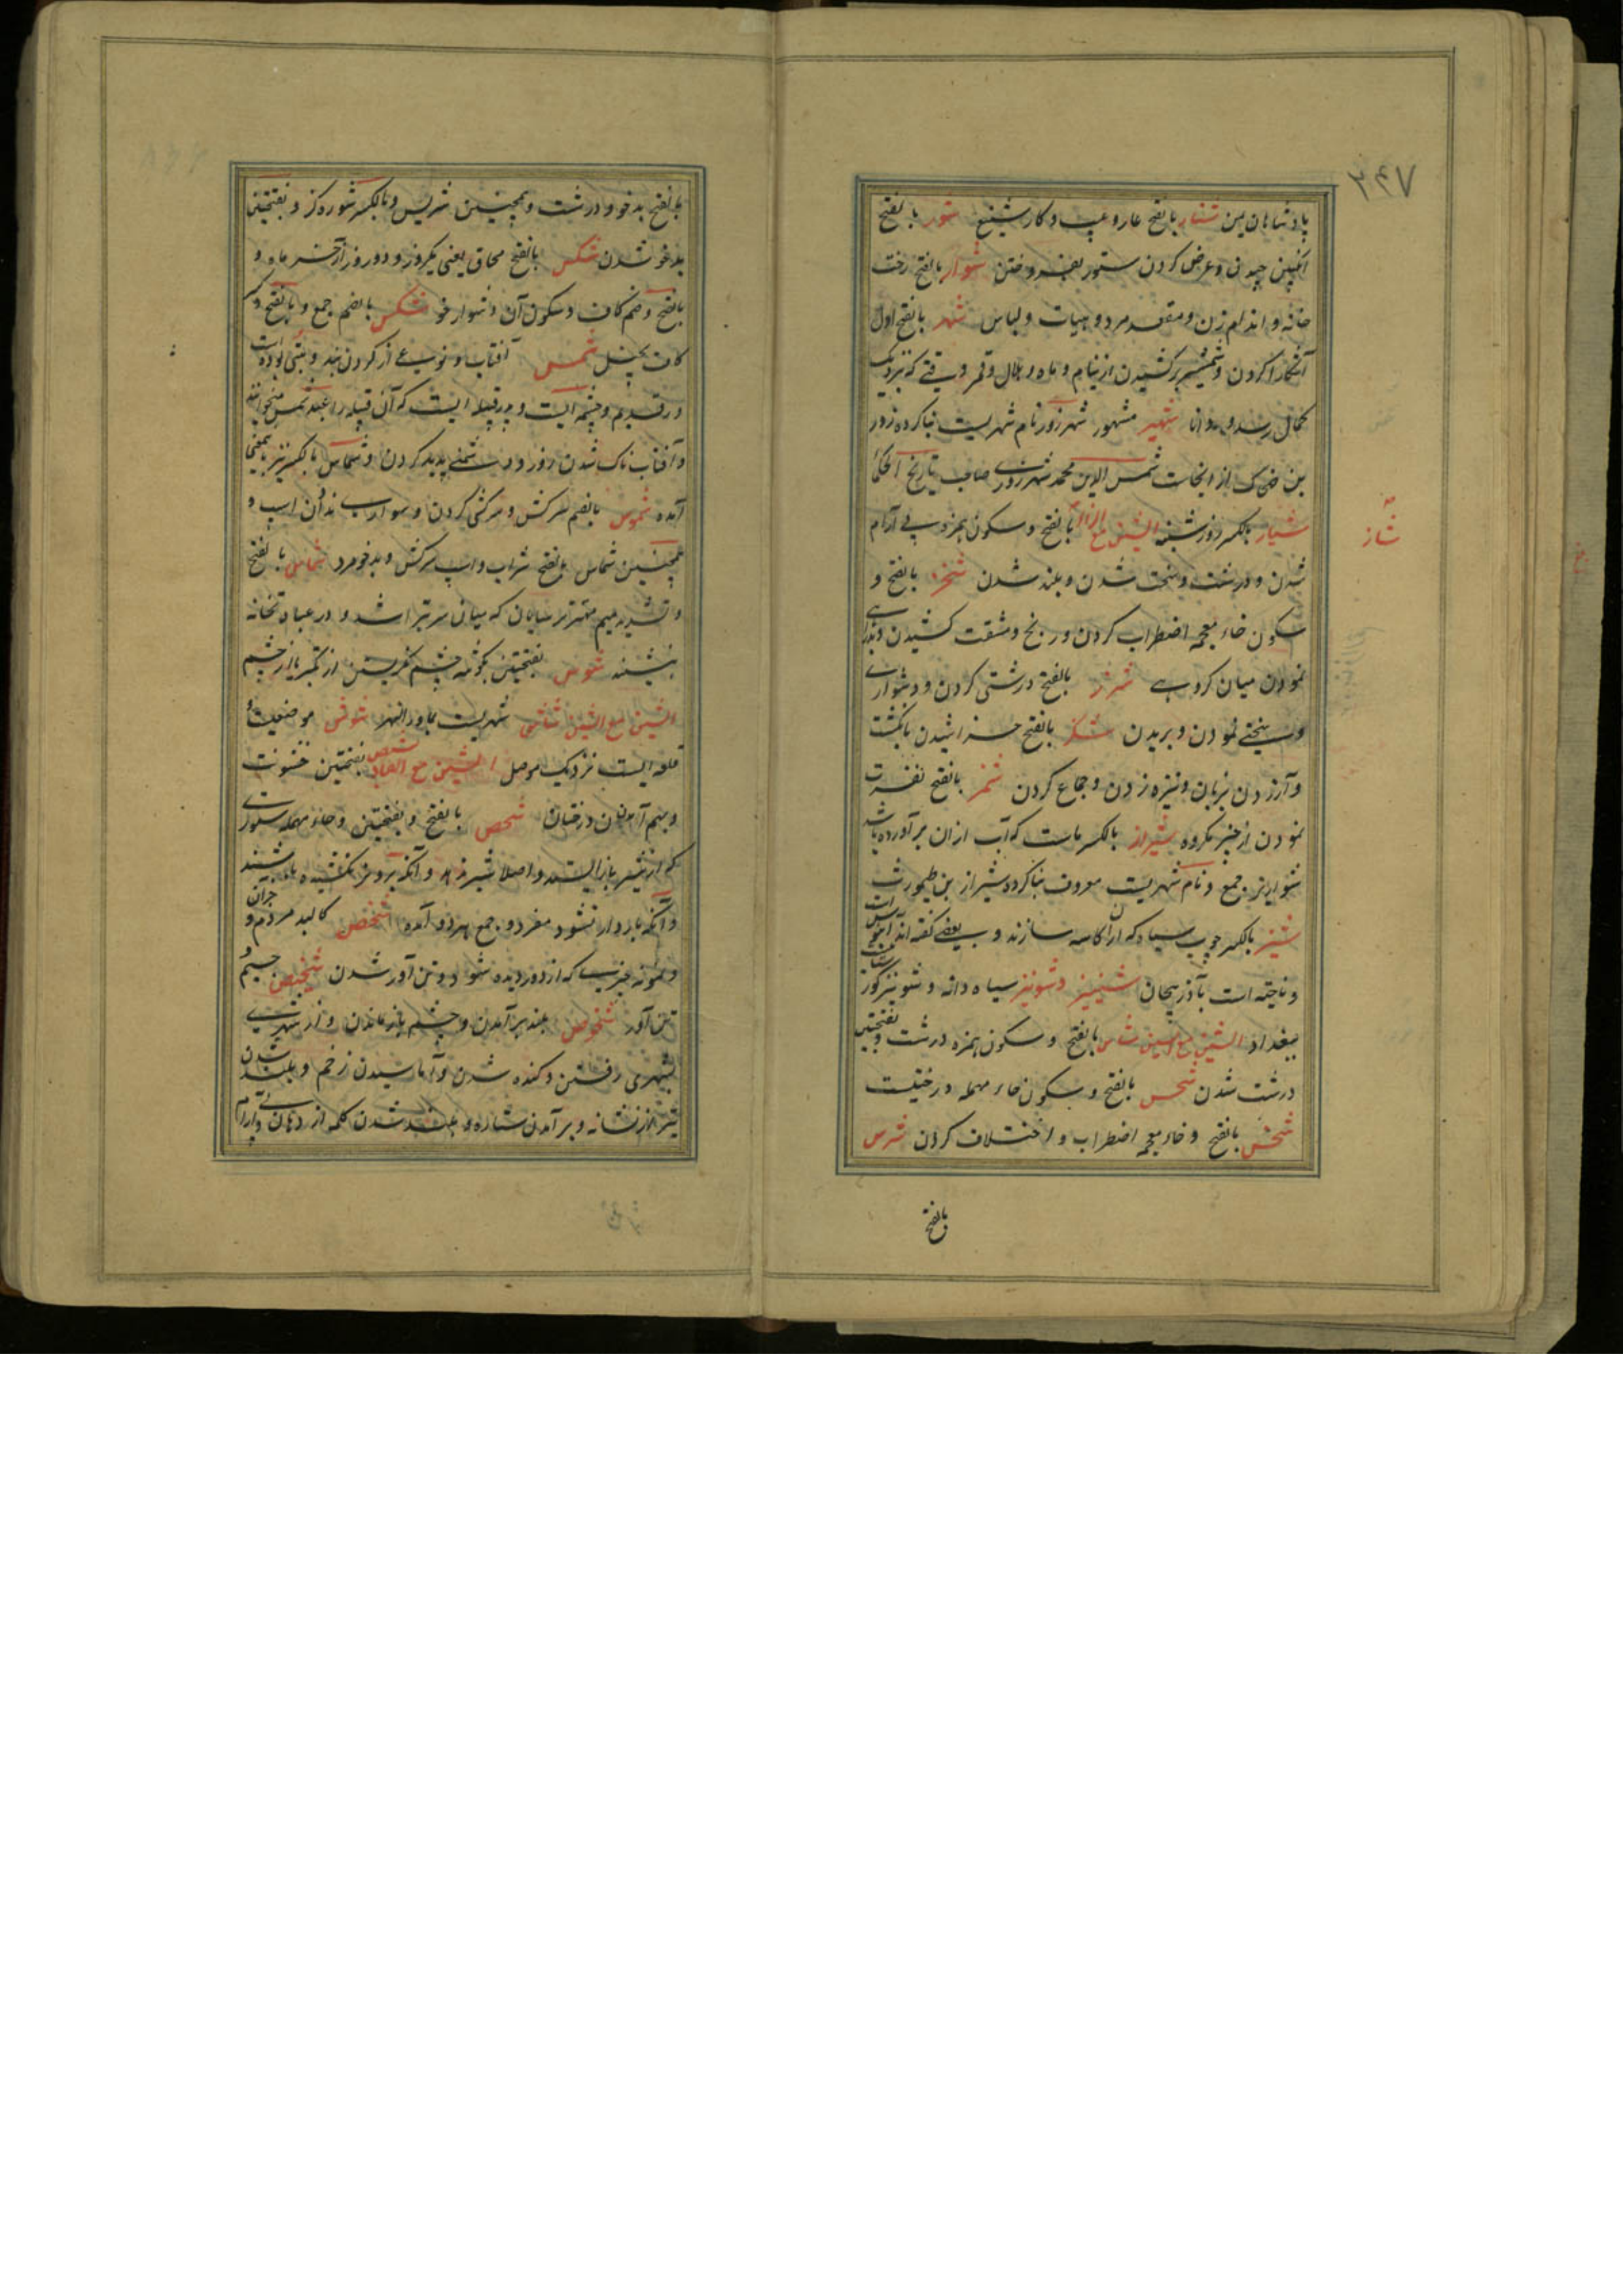 ۳۴۷
پادشاهان یمن شنار بالفتح عار و عیب و کار شنیع شور بالفتح
انگبین چیدن و عرض کردن ستور بفروختن شوار بالفتح رخت
خانه و اندام زن و مقعد مرد و هیات و لباس شهر بالفتح اول
آشکارا کردن و شمشیر برکشیدن از نیام و ماه و هلال و قمر وقتی که نزدیک
بکمال رسد و دانا شهیر مشهور شهرزور نام شهریست بنا کرده زور
بن ضحاک از انجاست شمس الدین محمد شهرزوری صاحب تاریخ الحکما
شیار بالکسر روز شنبه الشین مع الزاء بالفتح و سکون همزه بی آرام
شأز
شدن و درشت و سخت شدن و بلند شدن شخز بالفتح و
سکون خاء معجمه اضطراب کردن و رنج و مشقت کشیدن و
نمودن میان گروهی شرز بالفتح درشتی کردن و دشواری
و سختی نمودن و بریدن شکز بالفتح خراشیدن بانگشت
و آزردن بزبان و نیزه زدن و جماع کردن شمز بالفتح نفرت
نمودن از چیز مکروه شیراز بالکسر ماست که آب از آن برآورده باشد
شواریز جمع و نام شهریست معروف بنا کرده شیراز بن طهمورث
شیز بالکسر چوب سیاه که از آن کاسه سازند و بعضی گفته اند آبنوس است
و ناحیه است بآذربیجان شینیز و شونیز سیاه دانه و شونیز
ببغداد الشین مع السین شأس بالفتح و سکون همزه درشت و بفتحتین
درشت شدن شحس بالفتح و سکون حاء مهمله درختیست
شخس بالفتح و خاء معجمه اضطراب و اختلاف کردن شرس
بالفتح
بالفتح بدخو و درشت و همچنین شریس و بالکسر شوره گز و بفتحتین
بدخو شدن شکس بالفتح محاق یعنی یکروز و دو روز از آخر ماه و
بالفتح و ضم کاف و سکون آن دشوار خو شکس بالضم جمع و بالفتح و کسر
کاف بخیل شمس آفتاب و نوعی از گردن بند و بتی بوده است
در قدیم و چشمه ایست و پدر قبیله ایست که آن قبیله را عبد شمس میخوانند
و آفتاب ناک شدن روز و دشمنی پدید کردن و شماس بالکسر نیز باینمعنی
آمده شموس بالضم سرکش و سرکشی کردن و سواری ندادن اسپ و
همچنین شماس بالفتح شراب و اسپ سرکش و بدخو مرد شماس بالفتح
و تشدید میم مهتر ترسایان که میان سر تراشد و در عبادتخانه
نشیند شوس بفتحتین بگوشه چشم نگریستن از تکبر یا از خشم
الشین مع الشین شاش شهریست بماوراء النهر شوش موضعیست و
قلعه ایست نزدیک موصل الشین مع الصاد شصص بفتحتین خشونت
و بهم آمدن دندان درختان شحص بالفتح و بفتحتین و حاء مهمله ستوری
که از شیر باز ایستد و اصلا شیر ندهد و آنکه برو نر نکشیده باشند
و آنکه باردار نشود مفرد و جمع هر دو آمده شخص کالبد مردم و جز آن
و نمونه چیزی که از دور دیده شود و تن آور شدن شخیص جسیم و
تن آور شخوص بلند برآمدن و چشم باز ماندن و از شهری
بشهری رفتن و کنده شدن و آماسیدن زخم و بلند شدن
تیر از نشانه و برآمدن ستاره و بلند شدن کلمه از دهان و بی آرام